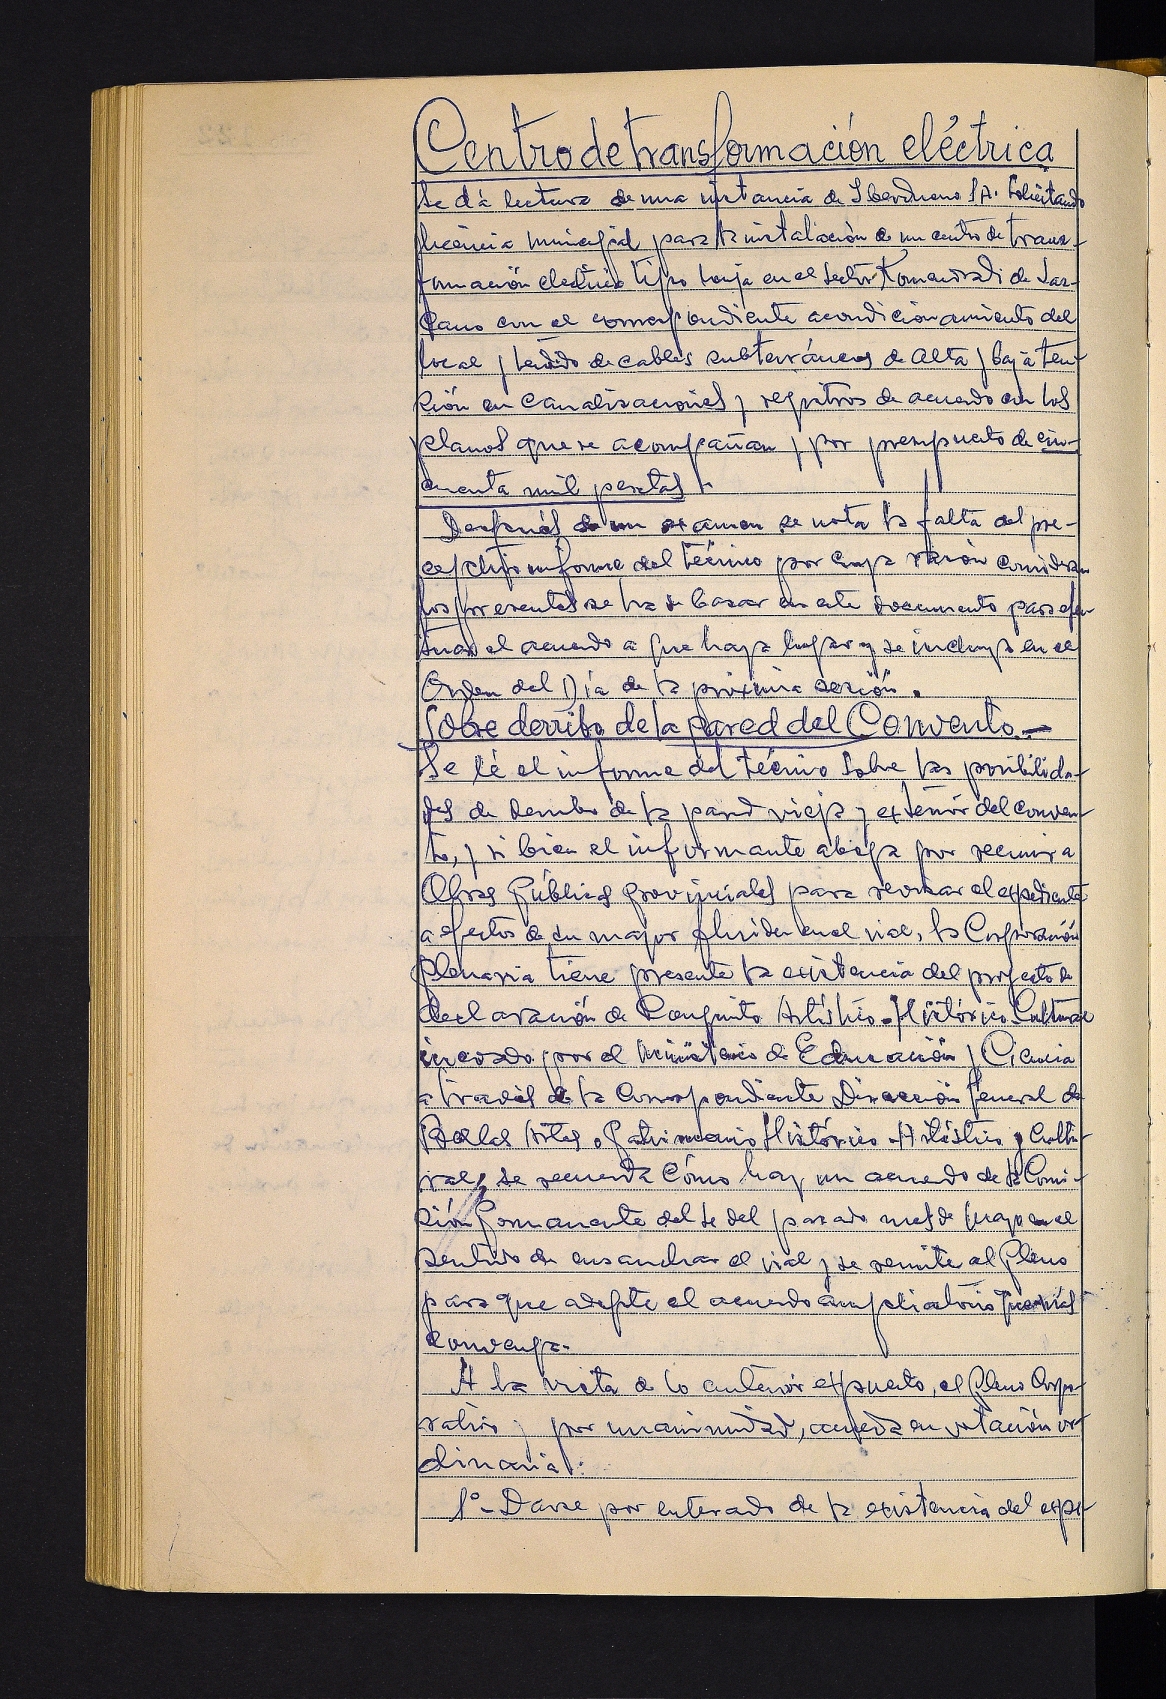 Centro de transformación eléctrica
Se dá lectura de una instancia de Iberduero S.A. solicitando
licencia municipal para la instalación de un centro de trans-
formación electrico tipo lonja en el sector Komendradi de Laz-
cano con el correspondiente acondicionamiento del
local y tendido de cables subterráneos de Alta y baja ten-
sión en canalizaciones y registros de acuerdo con los
planos que se acompañan y por presupuesto de cin-
cuenta mil pesetas.
Después de un examen se nota la falta del pre-
ceptivo informe del técnico por cuya razón consideran
los presentes se ha de basar en este documento para efec-
tuar el acuerdo a que haya lugar y se incluya en el
Orden del Día de la próxima sesión.
Sobre derribo de la pared del Convento.-
Se lé el informe del técnico sobre las posibilida-
des de derribo de la pared vieja y exterior del conven-
to, y si bien el informante aboga por reunir a
Obras Públicas Provinciales para revisar el expediente
a efectos de su mayor fluidez en el vial, la Corporación
Plenaria tiene presente la existencia del proyecto de
declaración de Conjunto Artístico-Histórico-Cultural
incoado por el Ministerio de Educación y Ciencia
a través de la Correspondiente Dirección General de
Bellas Artes o Patrimonio Histórico-Artístico y Cultu-
ral, se recuerda cómo hay un acuerdo de la Comi-
sión Permanente del de del pasado mes de mayo en el
sentido de ensanchar el vial y se remite al Pleno
para que adopte el acuerdo ampliatorio que más
convenga.-
A la vista de lo anterior expuesto, el Pleno Corpo-
rativo y por unanimidad, acuerda en votación or-
dinaria:
1º- Darse por enterado de la existencia del expe-